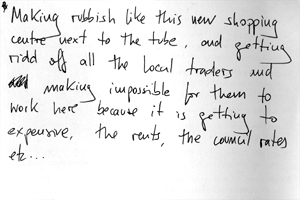 Making rubbish like this new shopping
centre next to the tube, and getting
ridd off all the local traders and
making impossible for them to
work here because it is getting to
expensive, the rents, the council rates
etc...